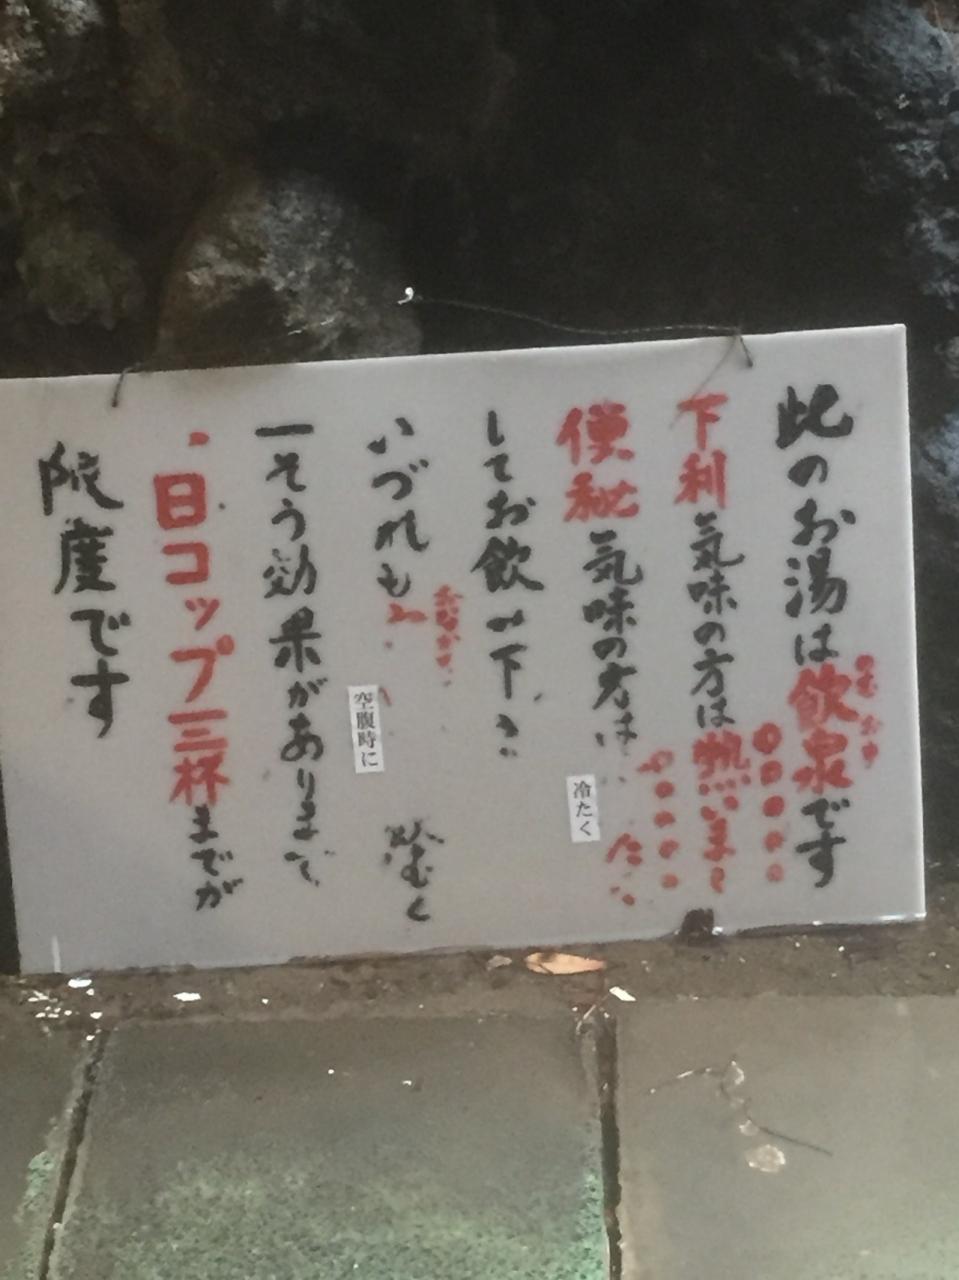 此のお湯は飲泉です
下利気味の方は熱いまま
便秘気味の方は
冷たく
してお飲み下さい
いづれも
空腹時に
飲むと
一そう効果があります
一日コップ三杯までが
限度です